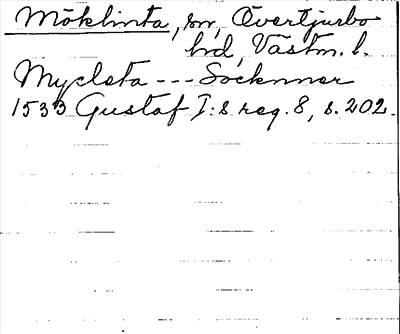 Möklinta, sn, Övertjurbo
hd, Västm. l.
Mycleta --- Socknner
1533 Gustaf I:s reg. 8, s. 202.